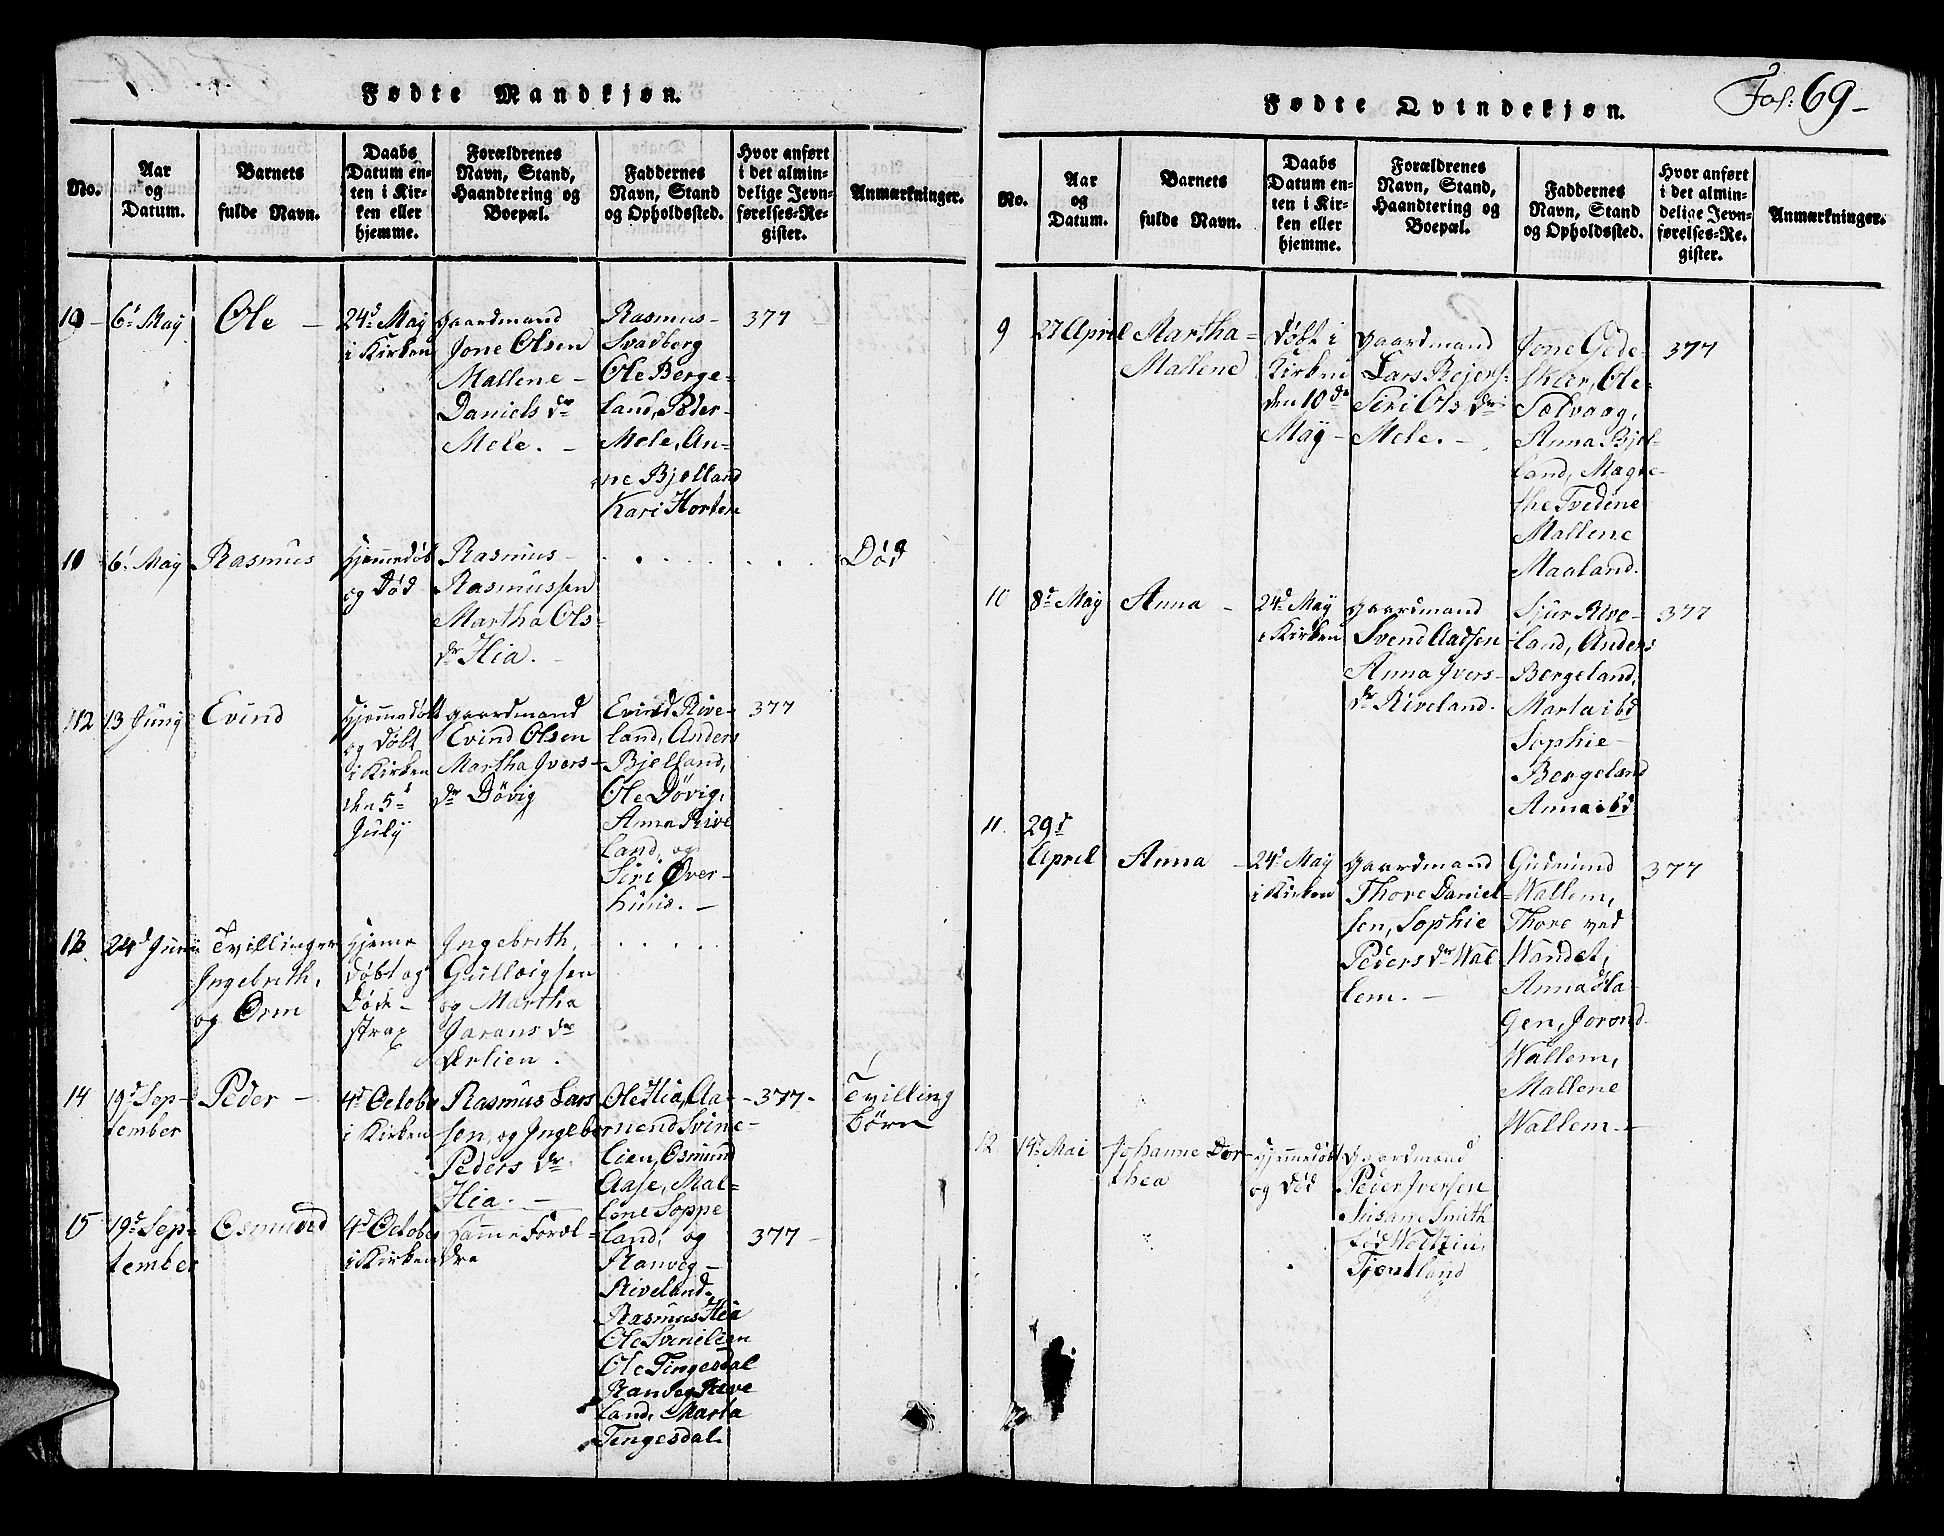 Fødte Mandkjøn.
No.
Aar
og
Datum.
Barnets
fulde Navn.
Daabs
Datum en-
ten i Kir-
ken eller
hjemme.
Forældrenes
Navn, Stand,
Haandtering og
Boepæl.
Faddernes
Navn, Stand
og Opholdssted.
Hvor anført
i det almin-
delige Jevn-
førelses-Re-
gister.
Anmærkninger.
10
6t May
Ole
24d May
i Kirken
gaardmand
Jone Olsen
Mallene
Daniels dr
Mele.
Rasmus
Svadberg
Ole Berge-
land, Peder
Mele, An-
ne Bjelland
Kari Horten
377
11
6t May
Rasmus
Hjemmedøbt
og Død
Rasmus
Rasmussen
Martha Ols-
dr Hia.
Død
12
13 Juny
Evind
Hjemmedøbt
og Døbt
i Kirken
den 5d
July
gaardmand
Evind Olsen
Martha Ivers-
dr Døvig
Evind Rive-
land, Anders
Bjelland,
Ole Døvig,
Anna Rive
land, og
Siri Øver-
huus.
377
24d Juni
Tvillinger
Ingebrith,
og Orm
Hjeme
Døbt og
Døde
strax
Ingebrith
Gulleigsen
og Martha
Jarans dr
Ørlien.
14
19d Sep-
tember
Peder
4d Octobr
i Kirken
Rasmus Lars
sen, og Ingebor
Peders dr
Hia.
Ole Hia, Aa-
mend Svine-
lien, Osmund
Aase, Mal-
lene Soppe
land, og
Ranveg
Riveland
377
Tvilling
Børn
15
19d Sep-
tember
Osmund
4d Octobr
i Kirken
Samme Foræl-
dre
Rasmus Hia
Ole Svinelien
Ole Tingesdal
Ranveg Rive
land, Marta
Tengesdal
377
Fødte Qvindekjøn.
Fol: 69
No.
Aar
og
Datum.
Barnets
fulde Navn.
Daabs
Datum en-
ten i Kir-
ken eller
hjemme.
Forældrenes
Navn, Stand,
Haandtering og
Boepæl.
Faddernes
Navn, Stand
og Opholdssted.
Hvor anført
i det almin-
delige Jevn-
førelses-Re-
gister.
Anmærkninger.
9
27 April
Martha
Mallene
Døbt i
Kirken
den 10de
May
gaardmand
Lars Rejers-
Siri Ols dr
Mele.
Jone Gede-
skar, Ole
Sælvaag,
Anna Bjel-
land, Magre-
the Tvedene
Mallene
Maaland.
377
10
8d May
Anna
24d May
i Kirken
gaardmand
Svend Aadsen
Anna Ivers-
dr Riveland.
Sjur Rive-
land, Anders
Bergeland,
Marta ibd
Sophie
Bergeland
Anna ibd
377
11.
29d
April
Anna
24d May
i Kirken
gaardmand
Thore Daniel
sen, Sophie
Peders dr Wal
lem.
Gudmund
Wallem,
Thore ved
Wandet,
Anna Ha-
gen, Jorond
Wallem,
Mallene
Wallem.
377
12
19d Mai
Johanne Dor-
thea
Hjemmedøbt
og Død
Gaardmand
Peder Iversen
Susane Smith
Tjenland